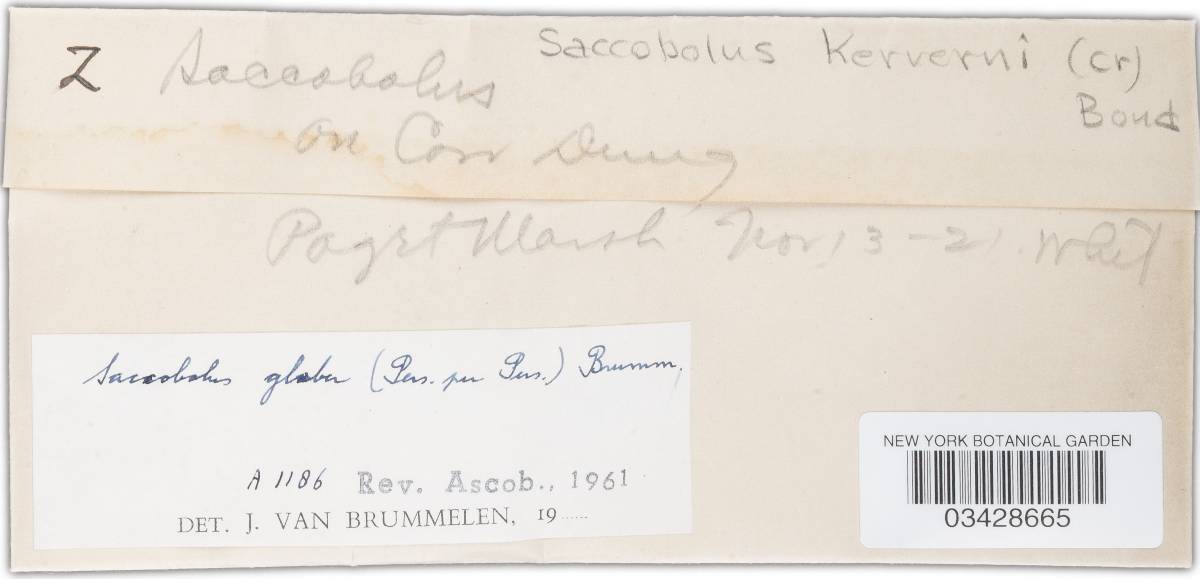 Z Saccobolus
Saccobolus Kerverni (Cr)
Boud
on Cow Dung
Paget Marsh Nov 13-21.
Saccobolus glaber (Pers. per Pers.) Brumm.
A 1186 Rev. Ascob., 1961
DET. J. VAN BRUMMELEN, 19......
NEW YORK BOTANICAL GARDEN
03428665